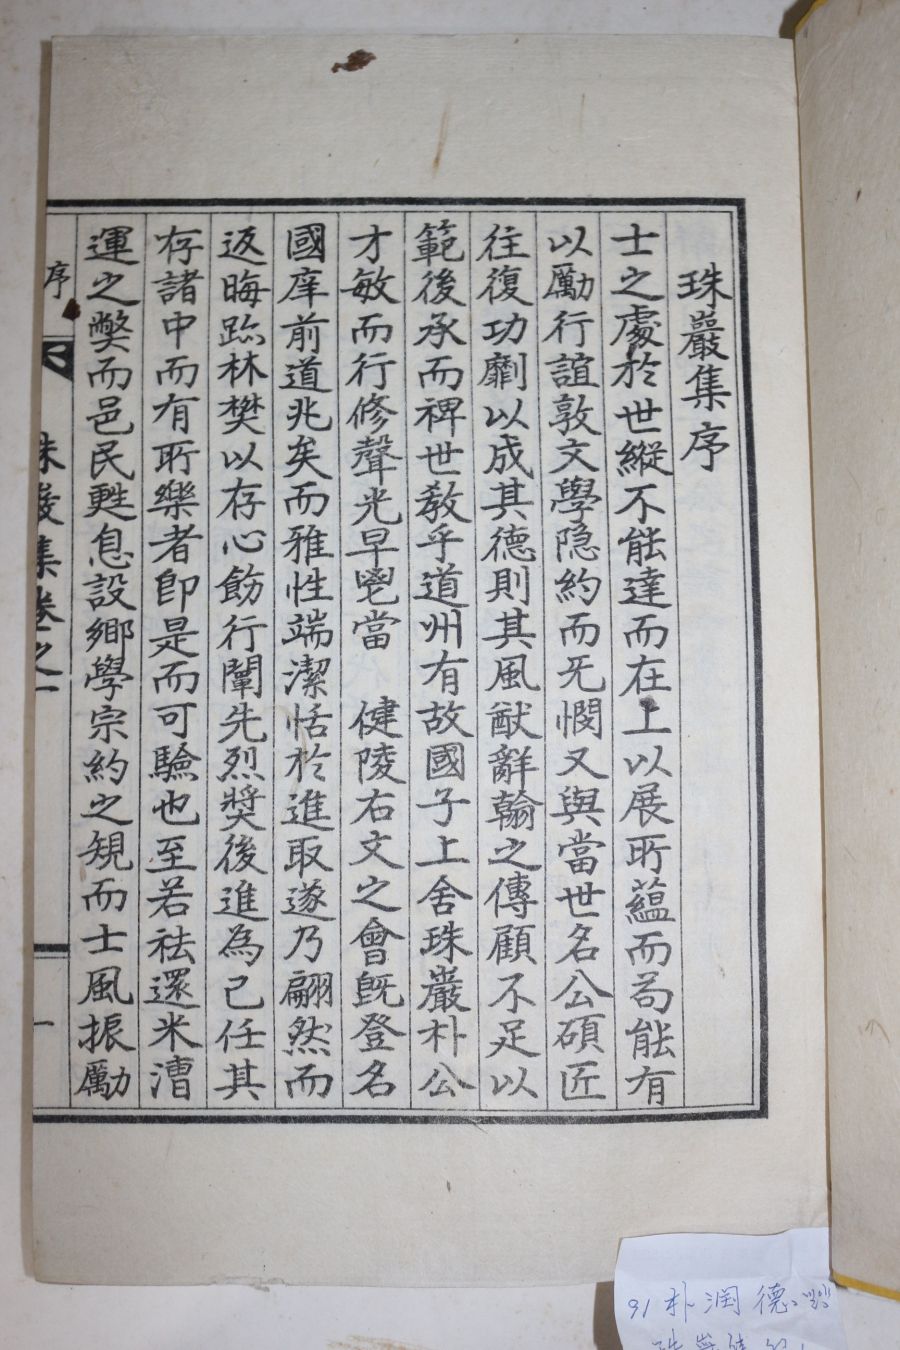 珠巖集序
士之處於世縱不能達而在上以展所蘊而苟能有
以勵行誼敦文學隐約而无憫又與當世名公碩匠
往復功劘以成其德則其風猷辭翰之傳顧不足以
範後承而裨世敎乎道州有故國子上舍珠巖朴公
才敏而行修聲光早鬯當 健陵右文之會旣登名
國庠前道兆矣而雅性端潔恬於進取遂乃翩然而
返晦跡林樊以存心飭行闡先烈奬後進為己任其
存諸中而有所樂者卽是而可驗也至若祛還米漕
運之獘而邑民甦息設鄕學宗約之規而士風振勵
序
珠巖集卷之一
一
91朴潤德